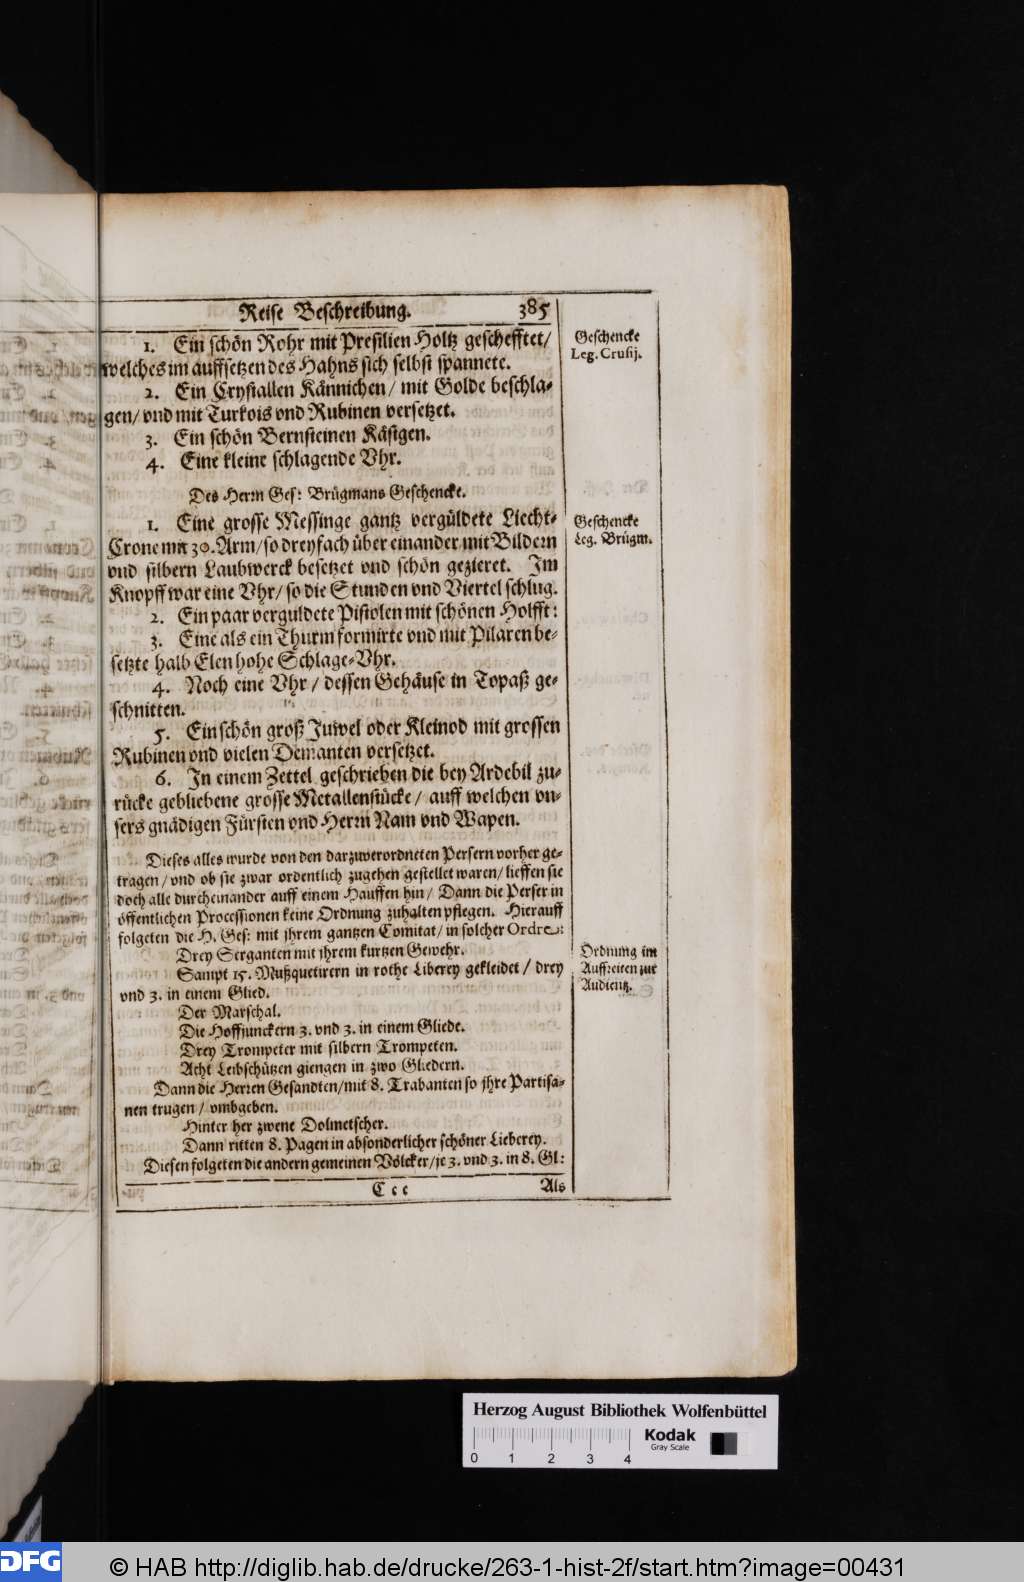 Reise Beschreibung. 385
1. Ein schön Rohr mit Presilien Holtz geschefftet/
welches im auffsetzen des Hahns sich selbst spannete.
Geschencke
Leg. Crusij.
2. Ein Crystallen Kännichen/ mit Golde beschla-
gen/ vnd mit Turkois vnd Rubinen versetzet.
3. Ein schön Bernsteinen Kästgen.
4. Eine kleine schlagende Vhr.
Des Herrn Ges: Brügmans Geschencke.
1. Eine grosse Messinge gantz vergüldete Liecht-
Crone mit 30. Arm/ so dreyfach über einander mit Bildern
vnd silbern Laubwerck besetzet vnd schön gezieret. Im
Knopff war eine Vhr/ so die Stunden vnd Viertel schlug.
Geschencke
Leg. Brügm.
2. Ein paar verguldete Pistolen mit schönen Holfft:
3. Eine als ein Thurm formirte vnd mit Pilaren be-
setzte halb Elen hohe Schlage-Vhr.
4. Noch eine Vhr/ dessen Gehäuse in Topaß ge-
schnitten.
5. Ein schön groß Juwel oder Kleinod mit grossen
Rubinen vnd vielen Demanten versetzet.
6. In einem Zettel geschrieben die bey Ardebil zu-
rücke gebliebene grosse Metallenstücke/ auff welchen vn-
sers gnädigen Fürsten vnd Herrn Nam vnd Wapen.
Dieses alles wurde von den darzuverordneten Persern vorher ge-
tragen/ vnd ob sie zwar ordentlich zugehen gestellet waren/ lieffen sie
doch alle durcheinander auff einem Hauffen hin/ Dann die Perser in
öffentlichen Processionen keine Ordnung zuhalten pflegen. Hierauff
folgeten die H. Ges: mit jhrem gantzen Comitat/ in solcher Ordre:
Drey Serganten mit jhrem kurtzen Gewehr.
Sampt 15. Mußquetirern in rothe Liberey gekleidet/ drey
vnd 3. in einem Glied.
Ordnung im
Auffreiten zur
Audientz.
Der Marschal.
Die Hoffjunckern 3. vnd 3. in einem Gliede.
Drey Trompeter mit silbern Trompeten.
Acht Leibschützen giengen in zwo Gliedern.
Dann die Herren Gesandten/ mit 8. Trabanten so jhre Partisa-
nen trugen/ vmbgeben.
Hinter her zwene Dolmetscher.
Dann ritten 8. Pagen in absonderlicher schöner Lieberey.
Diesen folgeten die andern gemeinen Völcker/ je 3. vnd 3. in 8. Gl:
C c c Als
Herzog August Bibliothek Wolfenbüttel
Kodak
Gray Scale
0 1 2 3 4
DFG © HAB http://diglib.hab.de/drucke/263-1-hist-2f/start.htm?image=00431